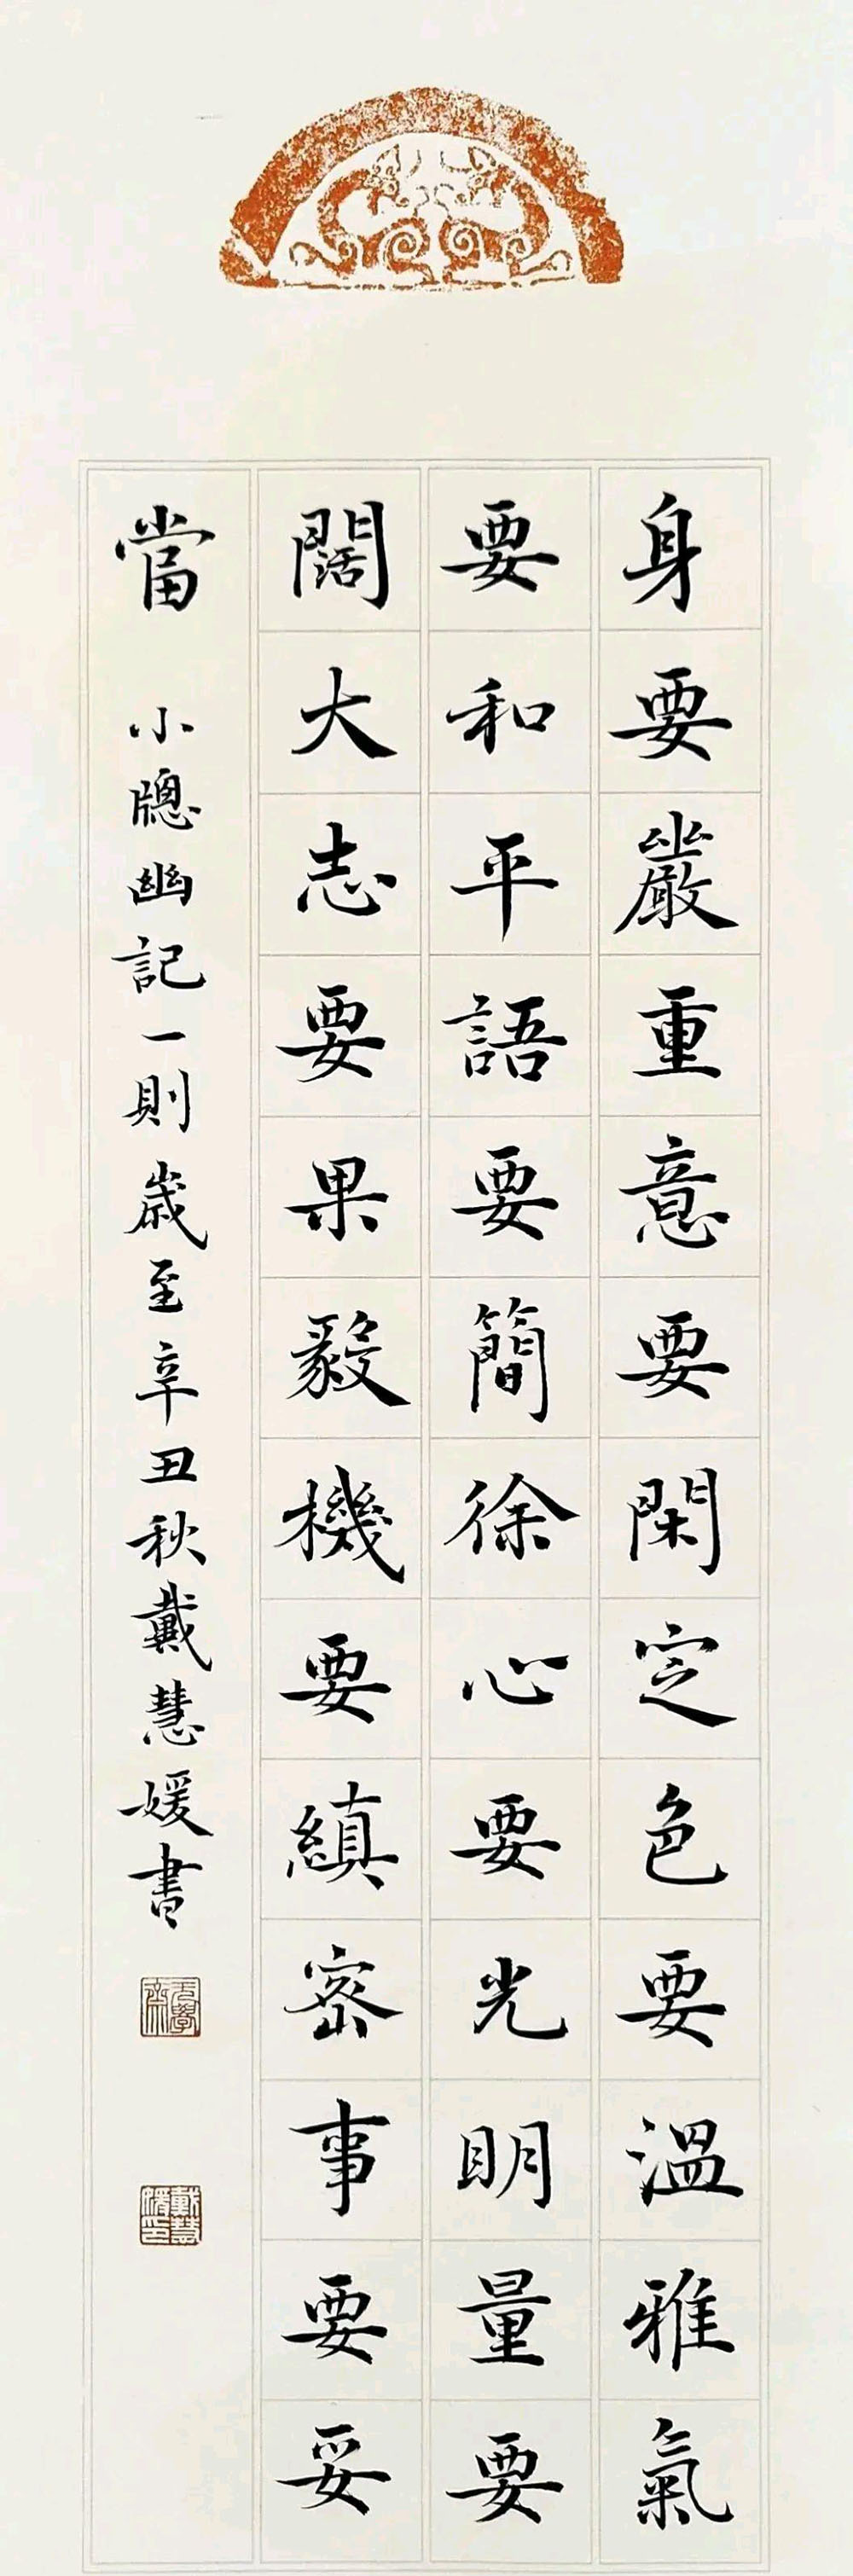 身要嚴重意要閑定色要溫雅氣
要和平語要簡徐心要光明量要
闊大志要果毅機要縝密事要妥
當
小牕幽記一則歲至辛丑秋戴慧媛書